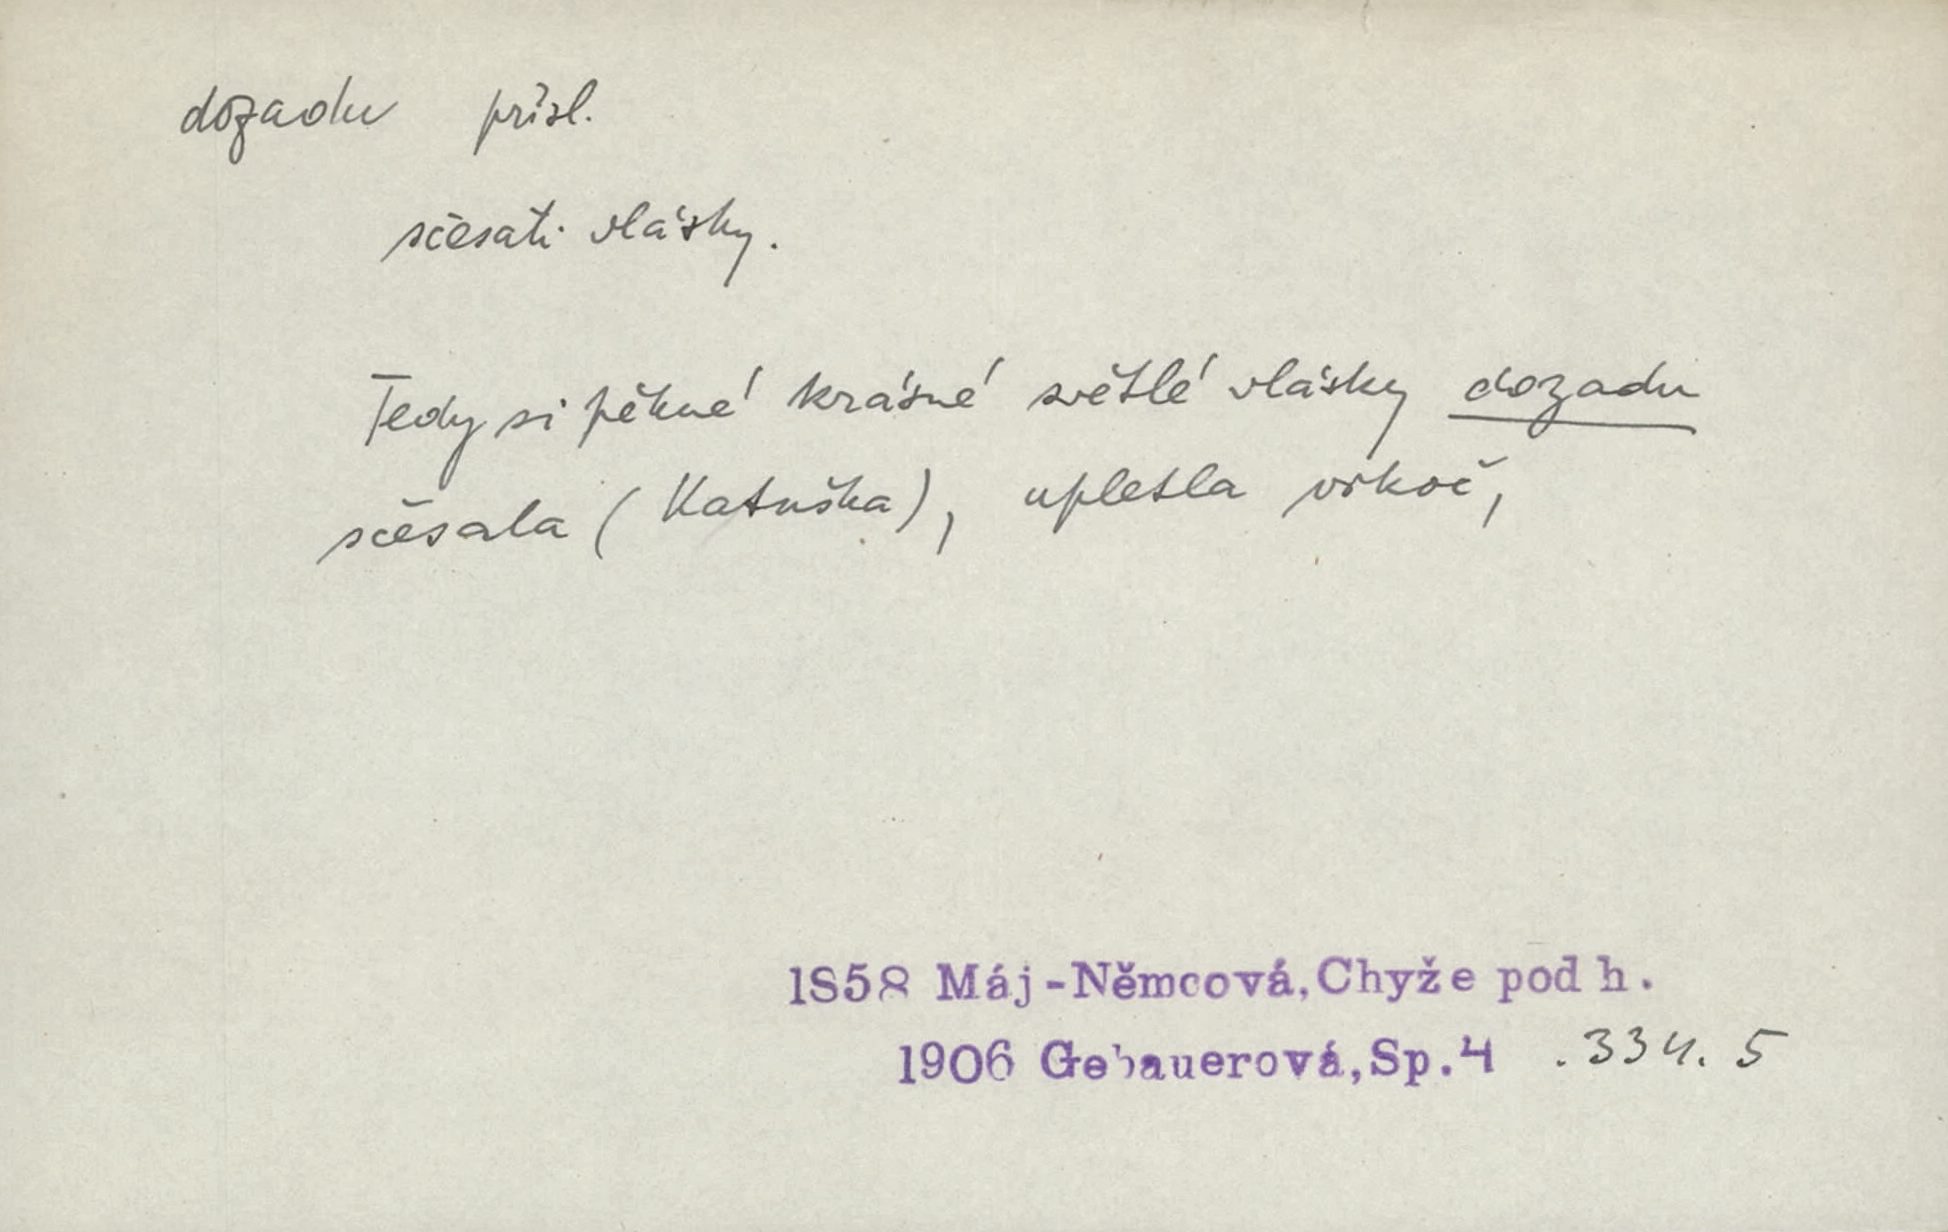 dozadu přísl.
sčesati vlásky.
Tedy si pěkné krásné světlé vlásky dozadu
sčesala (Katuška), upletla vrkoč,
1858 Máj-Němcová, Chyže pod h.
1906 Gebauerová, Sp. 4 .334. 5